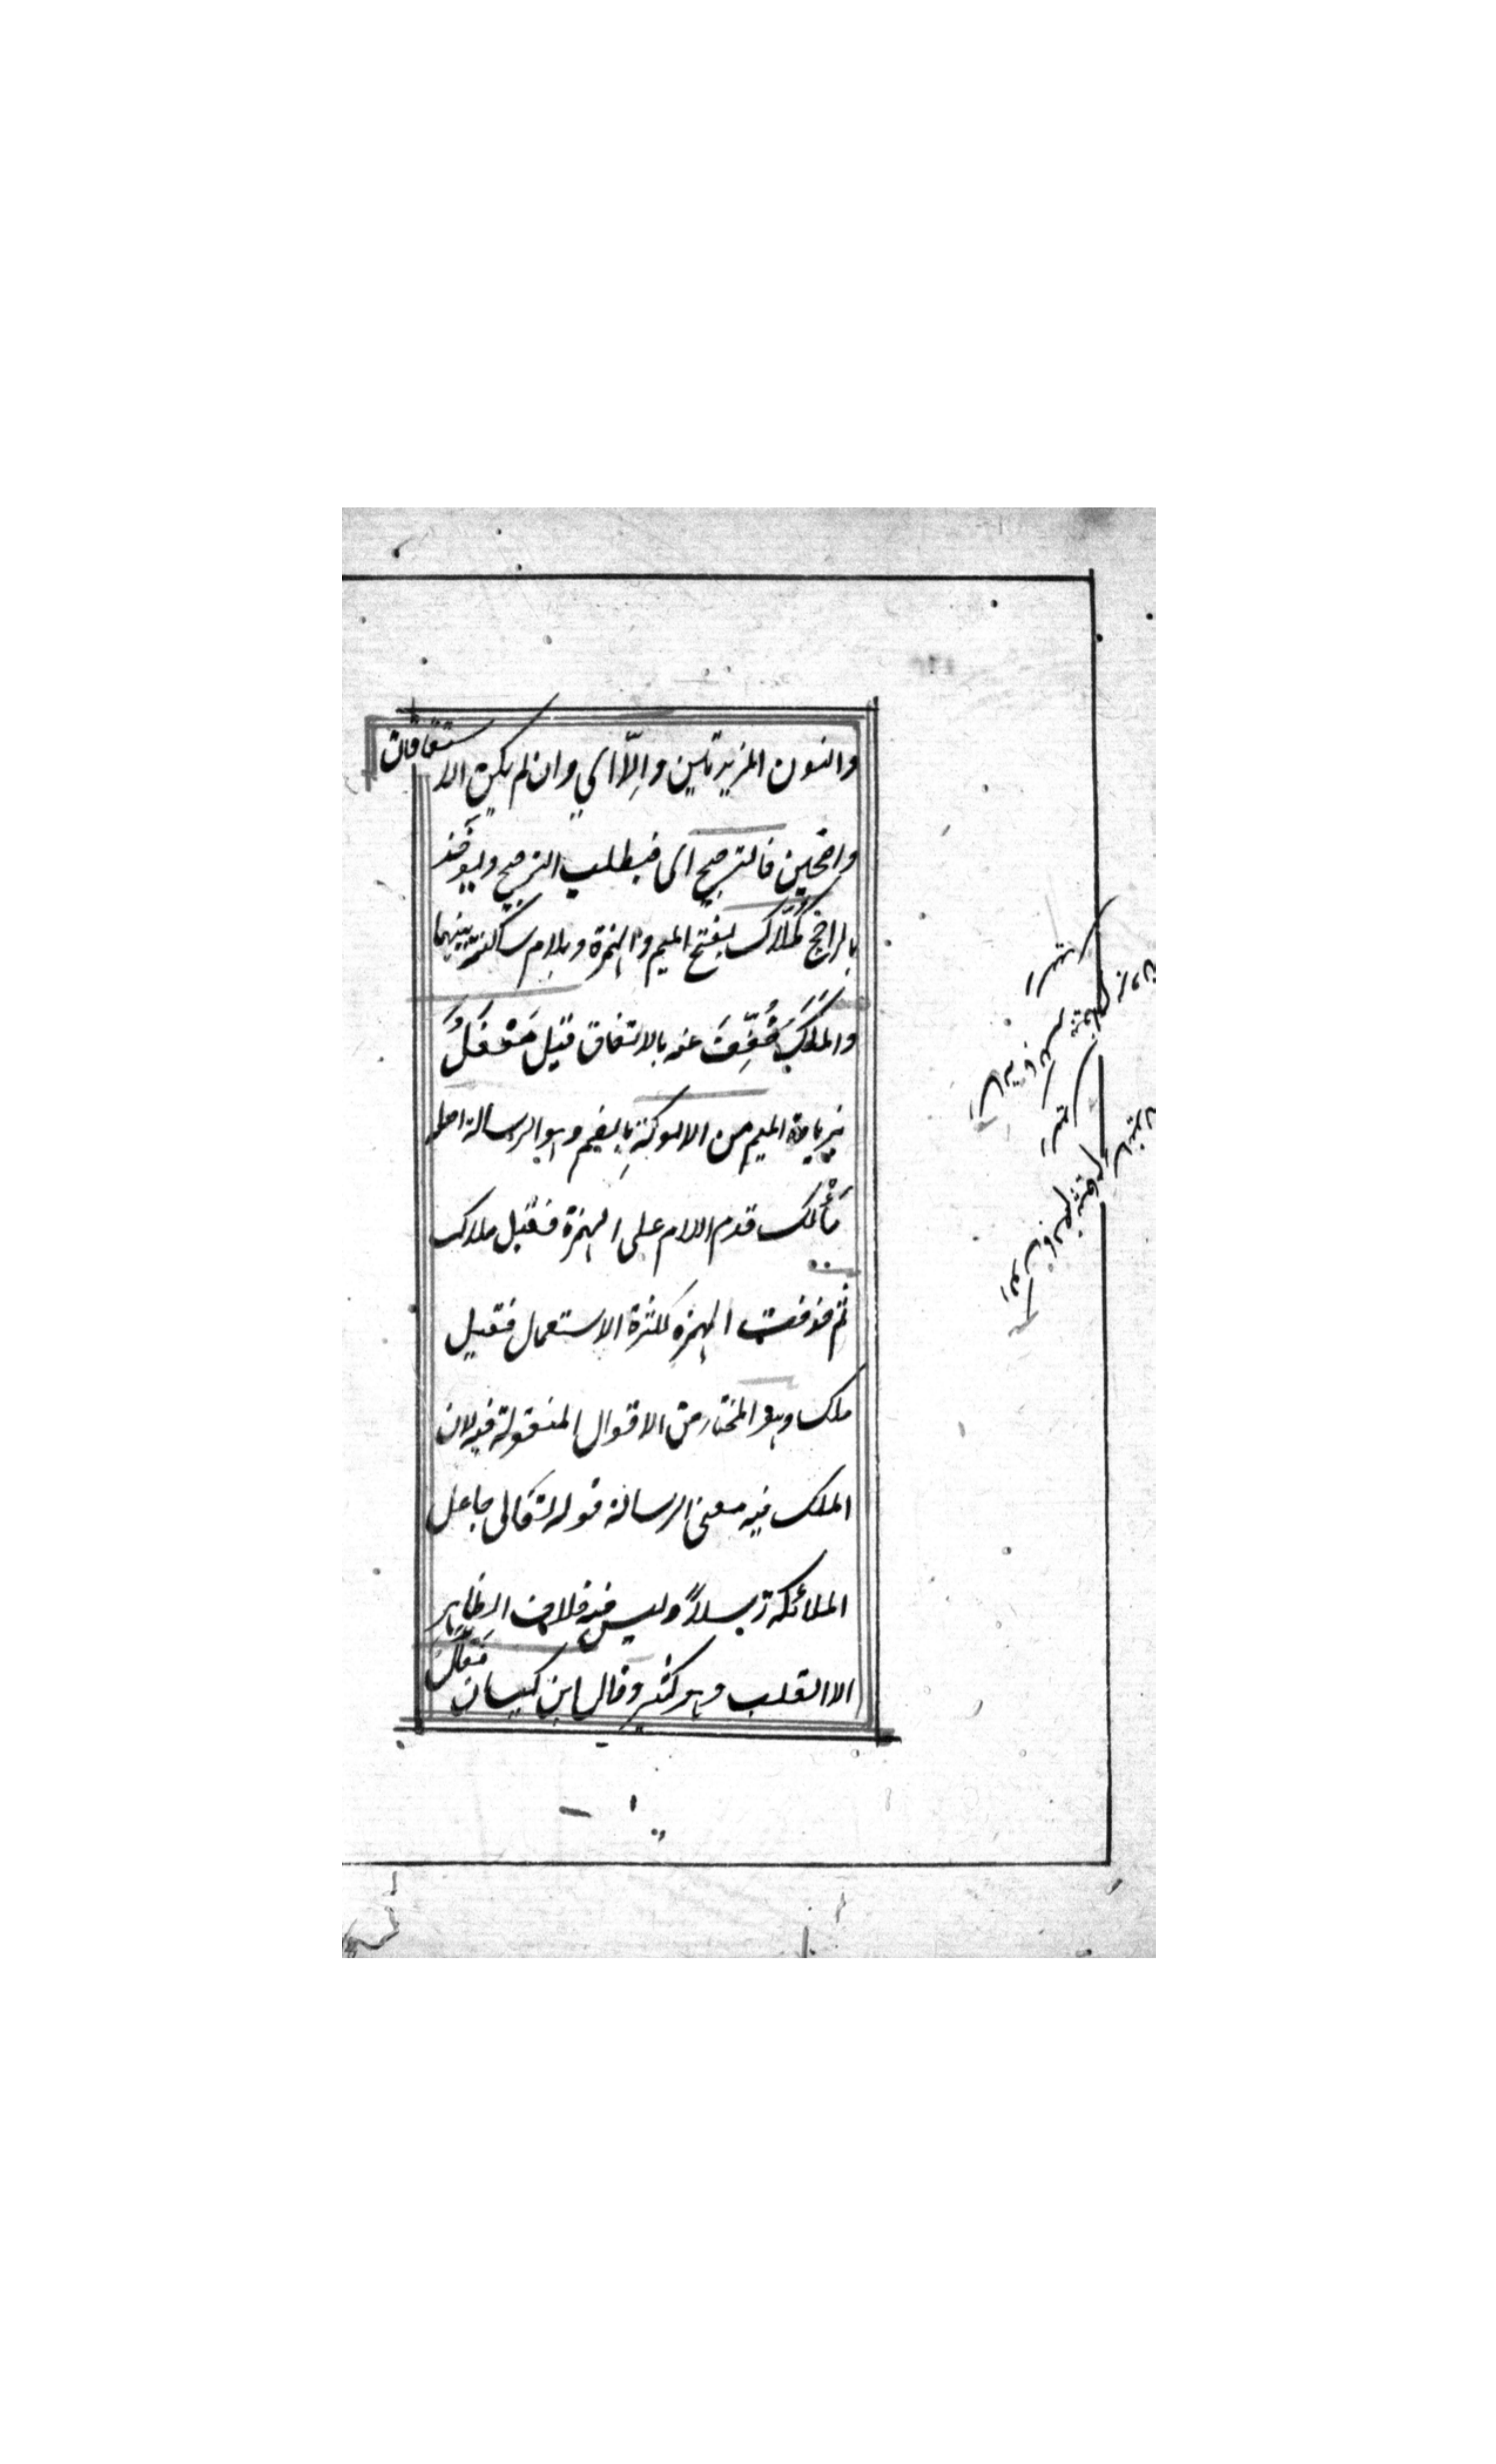 والنون المزيدتين وإلّا اي وان لم يكن الاشتقاقان
واضحين فالترجيح اى فيطلب الترجيح ويؤخذ
بالراجح كملأك بفتح الميم والهمزة وبلام ساكنة بينهما
والملَك مُخفِّفَ عنه بالاتفاق قيل مَفْعَلُ
بزيادة الميم من الالوكة بالضم وهو الرسالة اصله
مَأْلك قدم اللام على الهمزة فقيل ملاك
ثم حذفت الهمزة لكثرة الاستعمال فقيل
ملك وهو المختار من الاقوال المنقولة فيه لان
الملك فيه معنى الرسالة قوله تعالى جاعل
الملائكة رسلاً وليس فيه خلاف الظاهر
الا القلب وهو كثير وقال ابن كيسان فَعَال